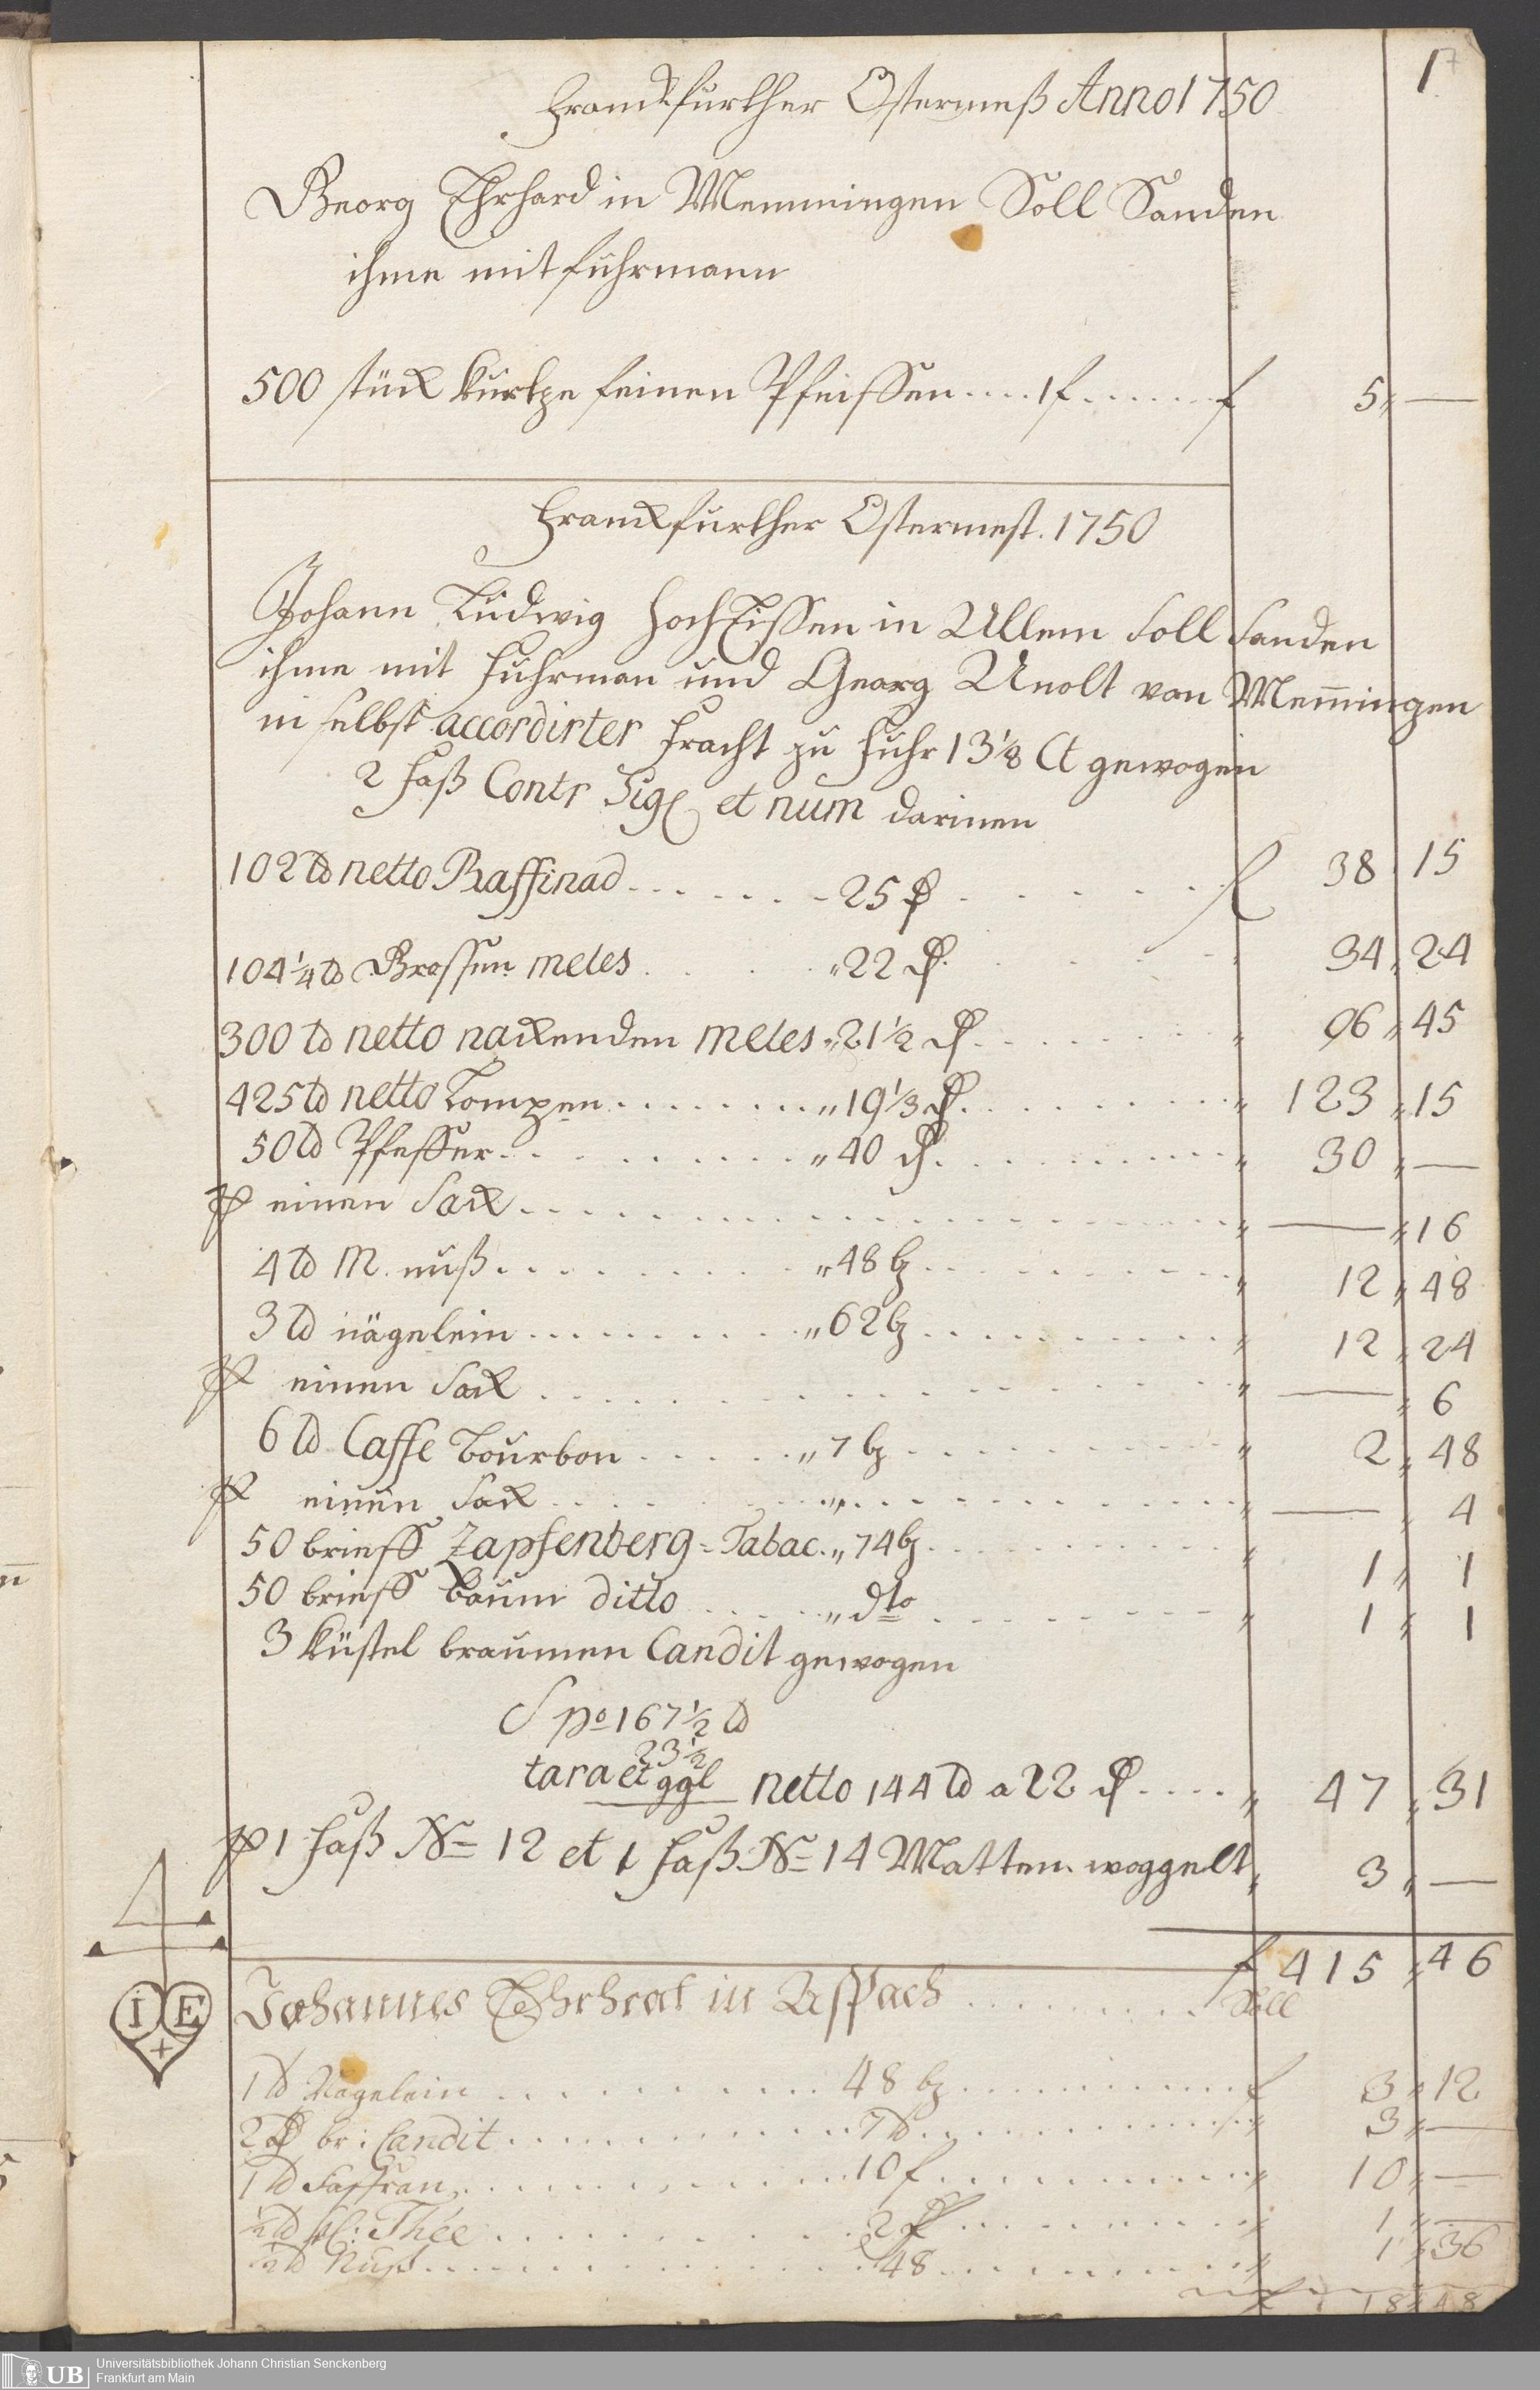 1
Franckfurther Ostermeß Anno 1750
Georg Ehrhard in Memmingen Soll Sanden
ihme mit fuhrmann
500 stück kurtze feinen Pfeiffen .... 1f ...... f 5 „ —
Franckfurther Ostermeß. 1750
Johann Ludwig Hocheissen in Ullem soll sanden
ihme mit fuhrman und Georg Unolt von Mem̄ingen
in selbst accordirter fracht zu fuhr 13 1/8 Ct gewogen
2 faß Contr Sig et num darinen
102 ℔ netto Raffinad ...... 25 ...... f 38 „ 15
104 1/4 ℔ Grossen meles ...... „ 22 ...... „ 34 „ 24
300 ℔ netto nackenden meles „ 21 1/2 ...... „ 96 „ 45
425 ℔ netto Lompen ...... „ 19 1/3 ...... „ 123 „ 15
50 ℔ Pfeffer ...... „ 40 ...... „ 30 „ —
P einen Sack ...... „ — „ 16
4 ℔ M. nuß ...... „ 48 bz ...... „ 12 „ 48
3 ℔ nägelein ...... „ 62 bz ...... „ 12 „ 24
P einen Sack ...... „ — „ 6
6 ℔ Caffe Bourbon ...... „ 7 bz ...... „ 2 „ 48
P einen Sack ...... „ ...... „ — „ 4
50 brieff Zapfenberg = Tabac . „ 74 bz ...... „ 1 „ 1
50 brieff Baum ditto ...... „ dto ...... „ 1 „ 1
3 küstel braunen Candit gewogen
Spo 167 1/2 ℔
23 1/2
tara et ggl netto 144 ℔ a 22 .... „ 47 „ 31
P 1 faß No 12 et 1 faß No 14 Matten „ 3 „ —
f 415 „ 46
I E
Johannes Ehrhrat in Asspach ...... Soll
1 ℔ Nägelein ...... 48 bz ...... f 3 „ 12
2 br: Candit ...... 7 ...... „ 3 „ —
1 ℔ Saffran ...... 10 f ...... „ 10 „ —
1/2 ℔ Thée ...... 2 f ...... „ 1 „ —
1/2 ℔ Nuß ...... 48 ...... „ 1 „ 36
f 18 „ 48
UB Universitätsbibliothek Johann Christian Senckenberg
Frankfurt am Main